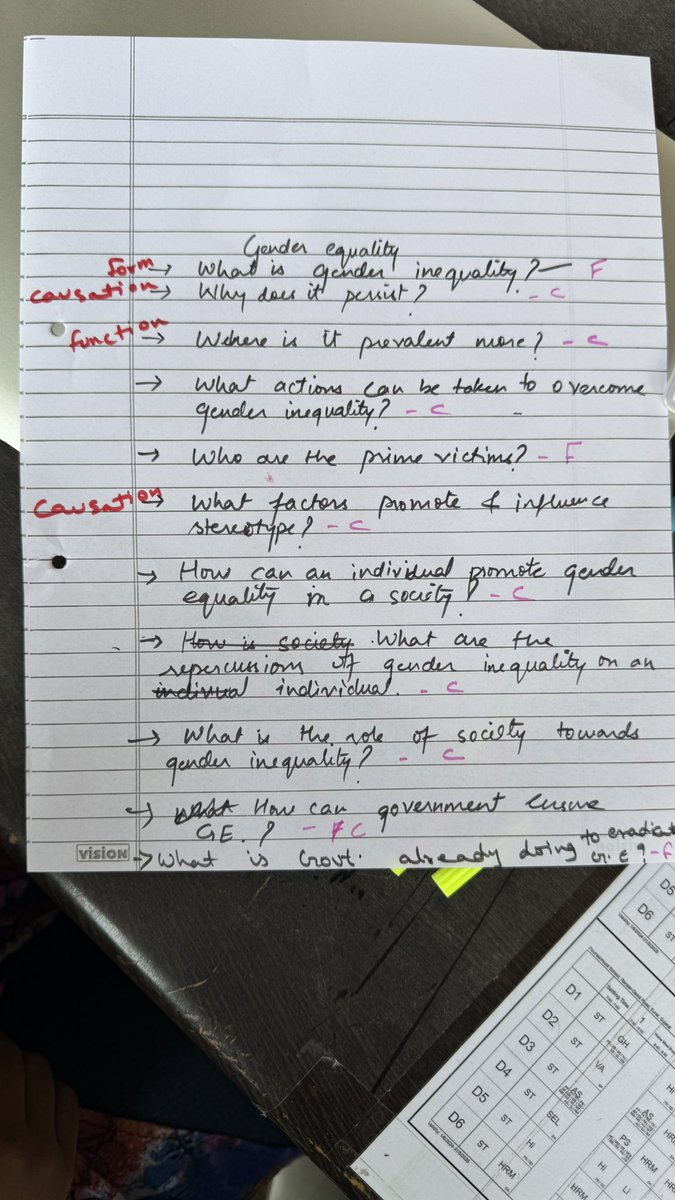 Gender equality
form → What is gender inequality? — F
causation → Why does it persist? - C
function → Where is it prevalent more? - C
→ What actions can be taken to overcome
gender inequality? - C
→ Who are the prime victims? - F
causation → What factors promote & influence
stereotype? - C
→ How can an individual promote gender
equality in a society? - C
→ How is society What are the
repercussions of gender inequality on an
indivual individual. - C
→ What is the role of society towards
gender inequality? - C
→ What How can government ensure
G.E. ? - F C
→ What is Govt. already doing to eradicate
G.E ? - F
VISION
D5
D6 ST
D1 ST GH
D2 ST VA
D3 ST AS
D4 ST SEL AS
D5 ST Hi PS
D6 ST HRM Hi Li HRM